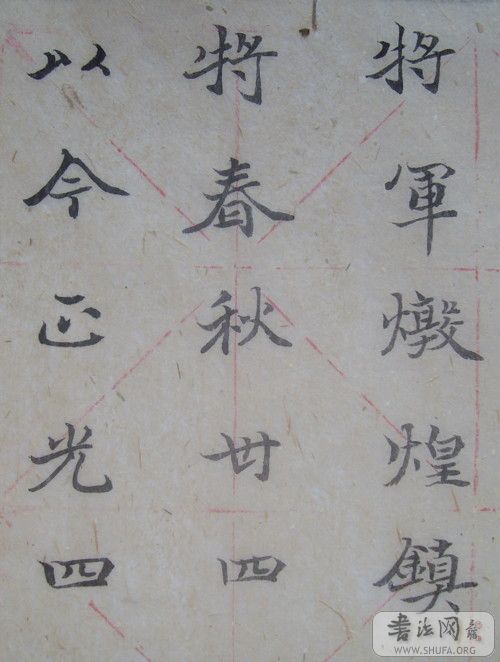 將軍燉煌鎮
將春秋卌四
以今正光四
书法网
WWW.SHUFA.ORG